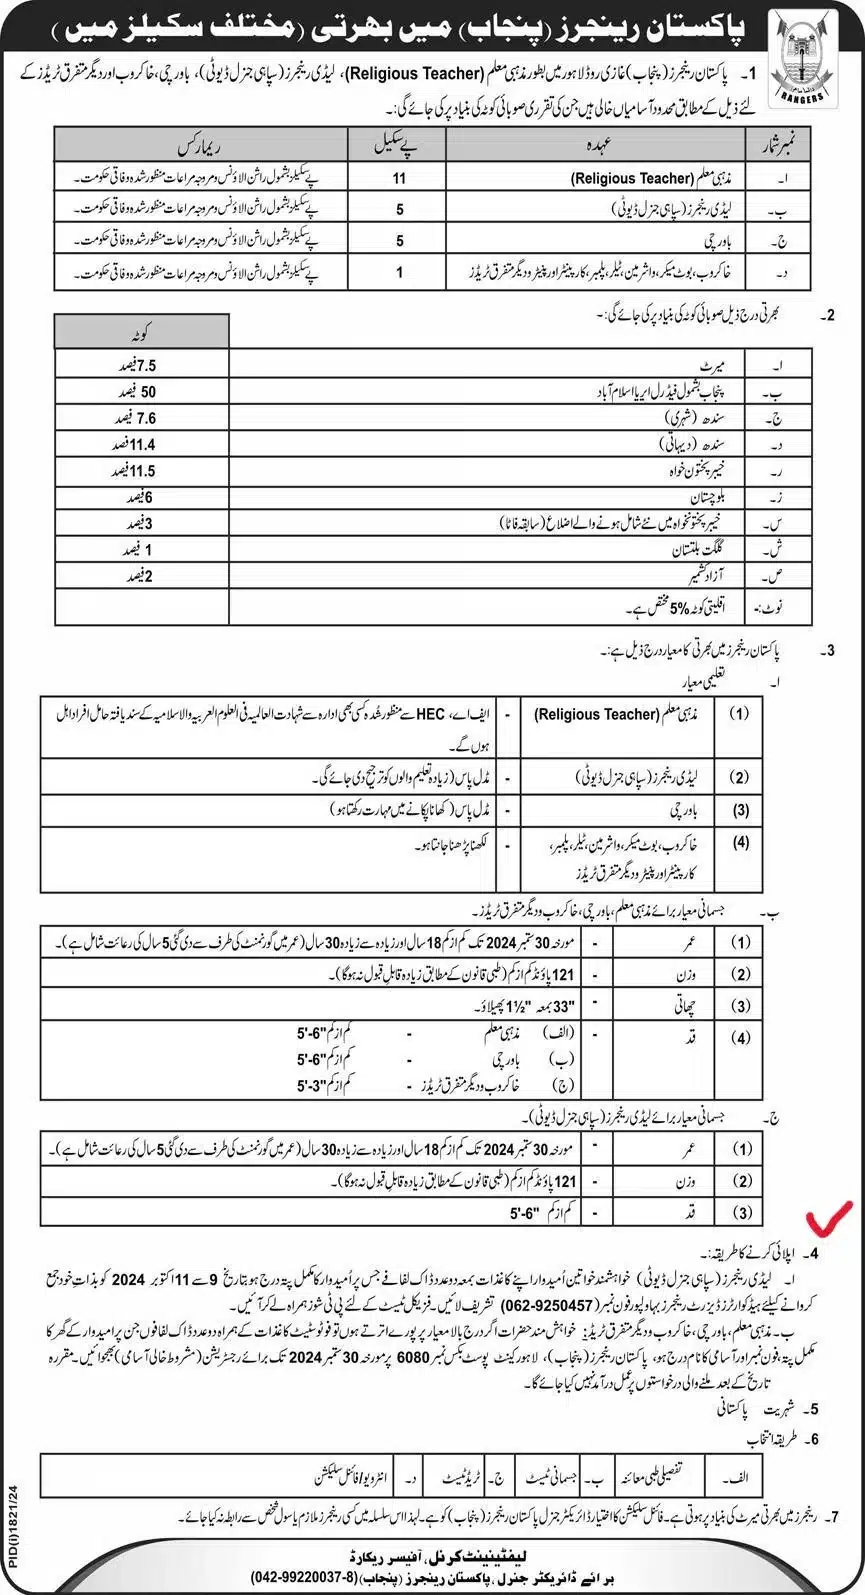 پاکستان رینجرز (پنجاب) میں بھرتی (مختلف سکیلز میں)
RANGERS
1۔ پاکستان رینجرز (پنجاب) غازی روڈ لاہور میں بطور مذہبی معلم (Religious Teacher)، لیڈی رینجرز (سپاہی جنرل ڈیوٹی)، باورچی، خاکروب اور دیگر متفرق ٹریڈز کے
لئے ذیل کے مطابق محدود آسامیاں خالی ہیں جن کی تقرری صوبائی کوٹہ کی بنیاد پر کی جائے گی:۔
نمبر شمار عہدہ پے سکیل ریمارکس
ا۔ مذہبی معلم (Religious Teacher) 11 پے سکیلز بشمول راشن الاؤنس ومروجہ مراعات منظور شدہ وفاقی حکومت۔
ب۔ لیڈی رینجرز (سپاہی جنرل ڈیوٹی) 5 پے سکیلز بشمول راشن الاؤنس ومروجہ مراعات منظور شدہ وفاقی حکومت۔
ج۔ باورچی 5 پے سکیلز بشمول راشن الاؤنس ومروجہ مراعات منظور شدہ وفاقی حکومت۔
د۔ خاکروب، بوٹ میکر، واشر مین، ٹیلر، پلمبر، کارپینٹر اور پینٹر و دیگر متفرق ٹریڈز 1 پے سکیلز بشمول راشن الاؤنس ومروجہ مراعات منظور شدہ وفاقی حکومت۔
2۔ بھرتی درج ذیل صوبائی کوٹہ کی بنیاد پر کی جائے گی:۔
کوٹہ
ا۔ میرٹ 7.5 فیصد
ب۔ پنجاب بشمول فیڈرل ایریا اسلام آباد 50 فیصد
ج۔ سندھ (شہری) 7.6 فیصد
د۔ سندھ (دیہاتی) 11.4 فیصد
ر۔ خیبر پختون خواہ 11.5 فیصد
ز۔ بلوچستان 6 فیصد
س۔ خیبر پختونخواہ میں نئے شامل ہونے والے اضلاع (سابقہ فاٹا) 3 فیصد
ش۔ گلگت بلتستان 1 فیصد
ص۔ آزاد کشمیر 2 فیصد
نوٹ:۔ اقلیتی کوٹہ 5% مختص ہے۔
3۔ پاکستان رینجرز میں بھرتی کا معیار درج ذیل ہے:۔
ا۔ تعلیمی معیار
(1) مذہبی معلم (Religious Teacher) - ایف اے، HEC سے منظور شدہ کسی بھی ادارہ سے شہادت العالمیہ فی العلوم العربیہ والاسلامیہ کے سند یافتہ حامل افراد اہل
ہوں گے۔
(2) لیڈی رینجرز (سپاہی جنرل ڈیوٹی) - مڈل پاس (زیادہ تعلیم والوں کو ترجیح دی جائے گی۔
(3) باورچی - مڈل پاس (کھانا پکانے میں مہارت رکھتا ہو)
(4) خاکروب، بوٹ میکر، واشر مین، ٹیلر، پلمبر، - لکھنا پڑھنا جانتا ہو۔
کارپینٹر اور پینٹر و دیگر متفرق ٹریڈز
ب۔ جسمانی معیار برائے مذہبی معلم، باورچی، خاکروب و دیگر متفرق ٹریڈز۔
(1) عمر - مورخہ 30 ستمبر 2024 تک کم از کم 18 سال اور زیادہ سے زیادہ 30 سال (عمر میں گورنمنٹ کی طرف سے دی گئی 5 سال کی رعائت شامل ہے)۔
(2) وزن - 121 پاؤنڈ کم از کم (طبی قانون کے مطابق زیادہ قابل قبول نہ ہوگا)۔
(3) چھاتی - "33 بمعہ "1½ پھیلاؤ۔
(4) قد - (الف) مذہبی معلم - کم از کم 5'-6"
(ب) باورچی - کم از کم 5'-6"
(ج) خاکروب و دیگر متفرق ٹریڈز - کم از کم 5'-3"
ج۔ جسمانی معیار برائے لیڈی رینجرز (سپاہی جنرل ڈیوٹی)۔
(1) عمر - مورخہ 30 ستمبر 2024 تک کم از کم 18 سال اور زیادہ سے زیادہ 30 سال (عمر میں گورنمنٹ کی طرف سے دی گئی 5 سال کی رعائت شامل ہے)۔
(2) وزن - 121 پاؤنڈ کم از کم (طبی قانون کے مطابق زیادہ قابل قبول نہ ہوگا)۔
(3) قد - کم از کم 5'-6"
4۔ اپلائی کرنے کا طریقہ:۔
ا۔ لیڈی رینجرز (سپاہی جنرل ڈیوٹی) خواہشمند خواتین اُمیدوار اپنے کاغذات بمعہ دو عدد ڈاک لفافے جس پر اُمیدوار کا مکمل پتہ درج ہو بتاریخ 9 سے 11 اکتوبر 2024 کو بذات خود جمع
کروانے کیلئے ہیڈ کوارٹرز ڈیزرٹ رینجرز بہاولپور فون نمبر (062-9250457) تشریف لائیں۔ فزیکل ٹیسٹ کے لئے پی ٹی شوز ہمراہ لے کر آئیں۔
ب۔ مذہبی معلم، باورچی، خاکروب و دیگر متفرق ٹریڈز: خواہش مند حضرات اگر درج بالا معیار پر پورے اترتے ہوں تو فوٹو سٹیٹ کاغذات کے ہمراہ دو عدد ڈاک لفافوں جن پر امیدوار کے گھر کا
مکمل پتہ، فون نمبر اور آسامی کا نام درج ہو، پاکستان رینجرز (پنجاب)، لاہور کینٹ پوسٹ بکس نمبر 6080 پر مورخہ 30 ستمبر 2024 تک برائے رجسٹریشن (مشروط خالی آسامی) بھجوائیں۔ مقررہ
تاریخ کے بعد ملنے والی درخواستوں پر عمل درآمد نہیں کیا جائے گا۔
5۔ شہریت پاکستانی
6۔ طریقہ انتخاب
الف۔ تفصیلی طبی معائنہ ب۔ جسمانی ٹیسٹ ج۔ ٹریڈ ٹیسٹ د۔ انٹرویو/فائنل سلیکشن
7۔ رینجرز میں بھرتی میرٹ کی بنیاد پر ہوتی ہے۔ فائنل سلیکشن کا اختیار ڈائریکٹر جنرل پاکستان رینجرز (پنجاب) کو ہے۔ لہٰذا اس سلسلہ میں کسی رینجرز ملازم یا سول شخص سے رابطہ نہ کیا جائے۔
لیفٹیننٹ کرنل، آفیسر ریکارڈ
برائے ڈائریکٹر جنرل، پاکستان رینجرز (پنجاب) (042-99220037-8)
PID(i)1821/24